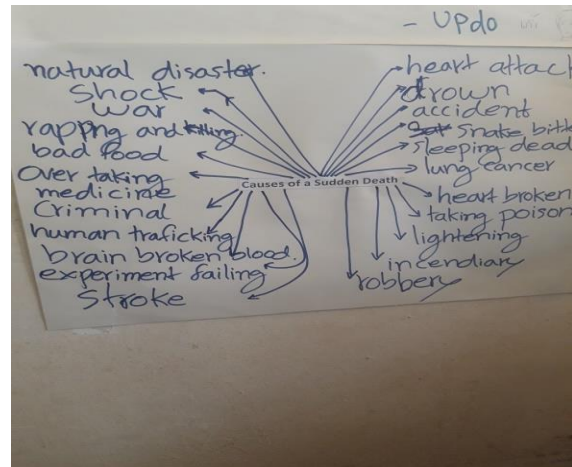 - UPdo
natural disaster.
Shock
War
rappng and killing.
bad food
Over taking
medicine
Criminal
human traficking
brain broken blood.
experiment failing
Stroke
Causes of a Sudden Death
heart attack
drown
accident
Snake bitte
sleeping dead
lung cancer
heart broken
taking poison
lightening
incendiary
robbery